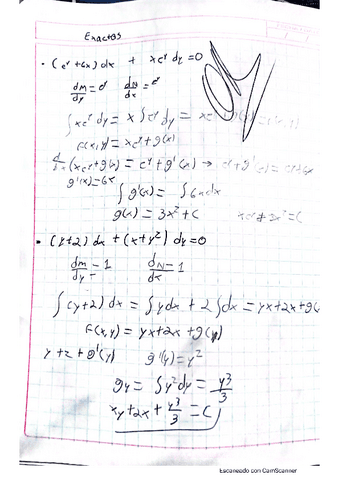 Exactas
• (e^y + 6x) dx + x e^y dy = 0
dM/dy = e^y   dN/dx = e^y
∫ x e^y dy = x ∫ e^y dy = x e^y
F(x,y) = x e^y + g(x)
(x e^y + g(x) = e^y + g'(x) →
g'(x) = 6x
∫ g'(x) = ∫ 6x dx
g(x) = 3x² + C
• (y+2) dx + (x+y²) dy = 0
dM/dy = 1   dN/dx = 1
∫ (y+2) dx = ∫ y dx + 2 ∫ dx = yx + 2x + g(
F(x,y) = yx + 2x + g(y)
g'(y) = y²
gy = ∫ y² dy = y³/3
xy + 2x + y³/3 = C
Escaneado con CamScanner